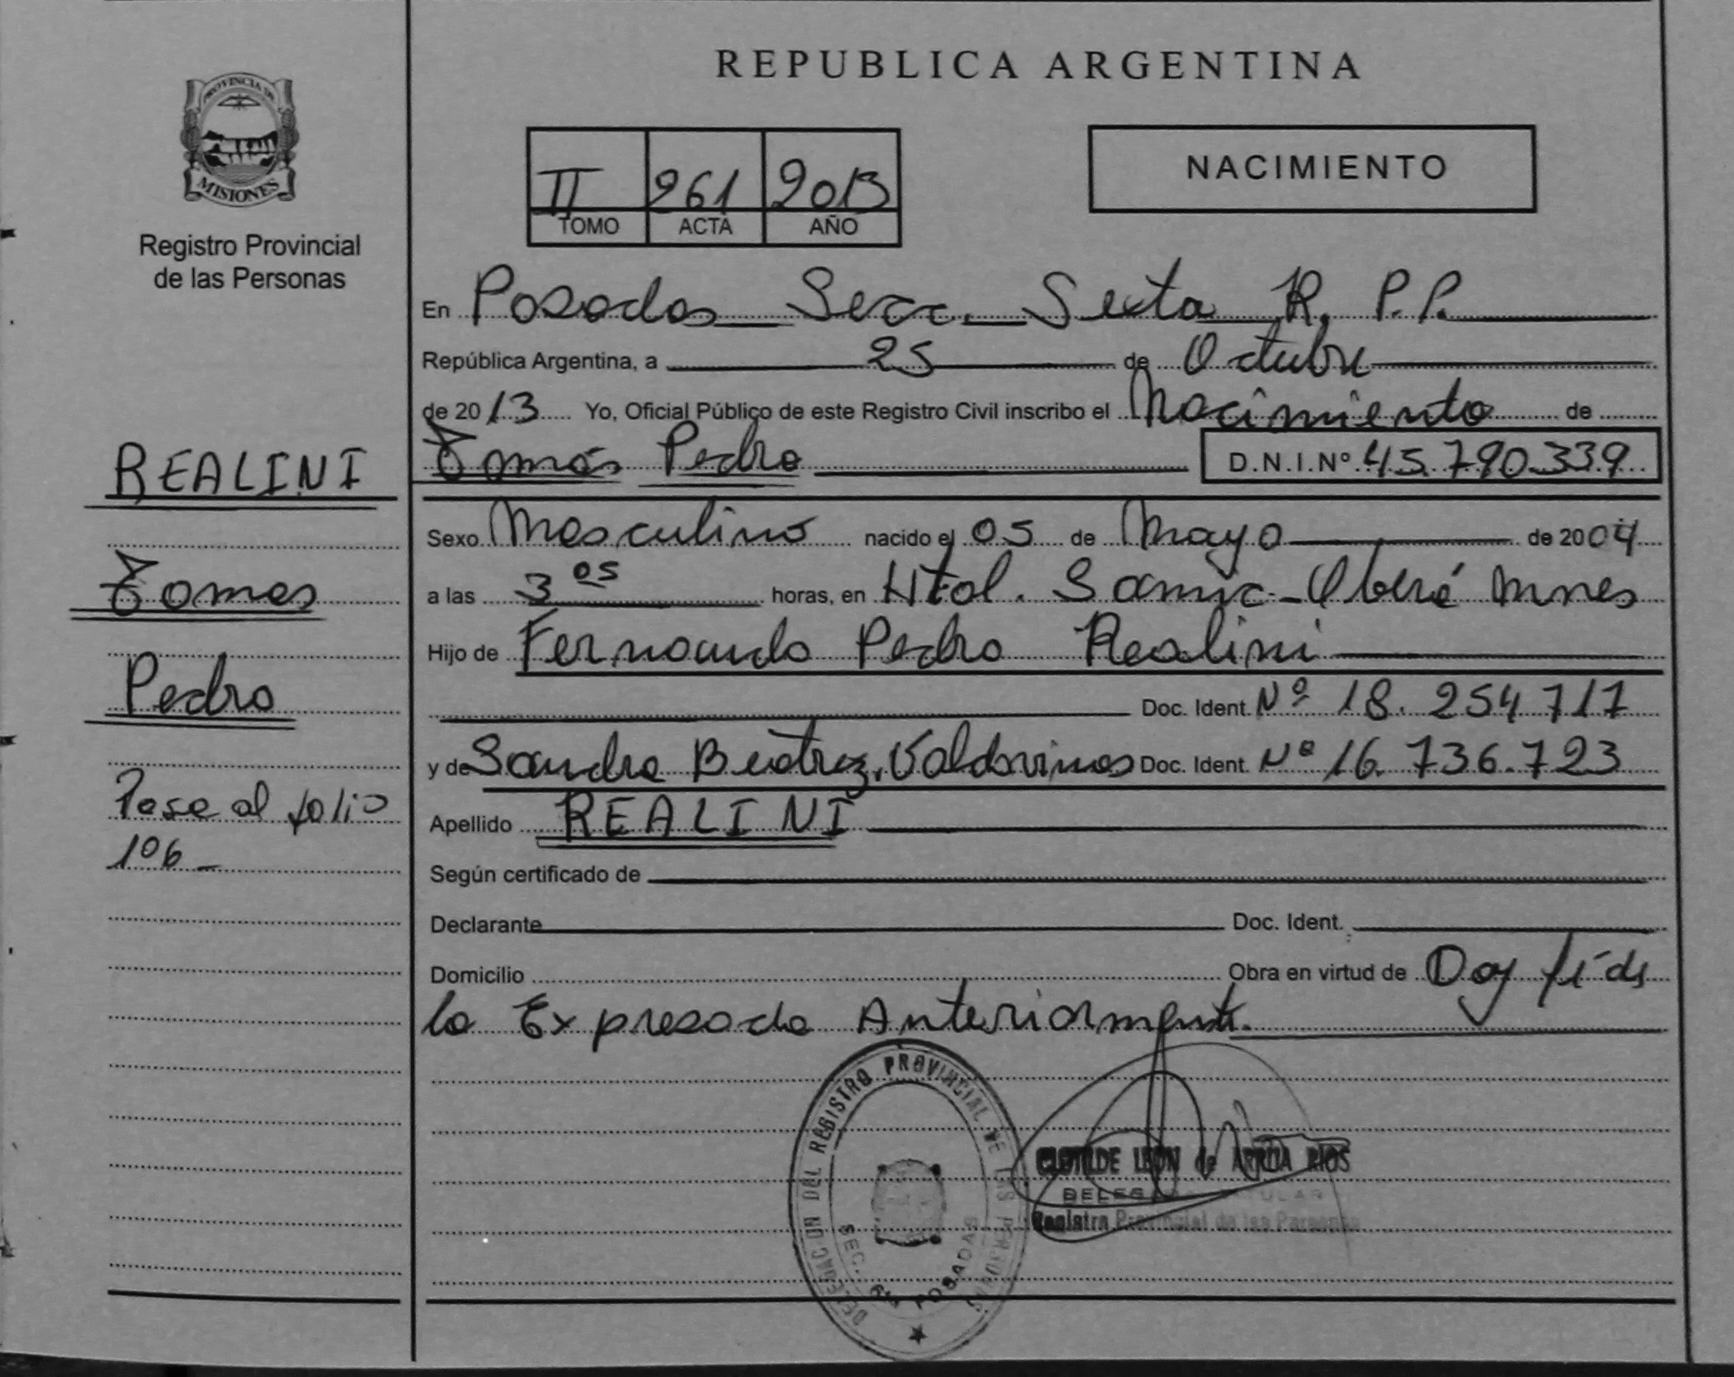 PROVINCIA DE
MISIONES
Registro Provincial
de las Personas
REALINI
Tomas
Pedro
Pase al folio
106_
REPUBLICA ARGENTINA
II 261 2013
TOMO ACTA AÑO
NACIMIENTO
En Posadas Secc. Sexta R. P.P.
República Argentina, a 25 de Octubre
de 2013 Yo, Oficial Público de este Registro Civil inscribo el Nacimiento de
Tomás Pedro D.N.I.Nº 45.790.339
Sexo Masculino nacido el 05 de Mayo de 2004
a las 3 05 horas, en Htal. Samic - Oberá Mnes
Hijo de Fernando Pedro Realini
Doc. Ident. Nº 18.254.717
y de Sandra Beatriz Valdovinos Doc. Ident. Nº 16.736.723
Apellido REALINI
Según certificado de
Declarante Doc. Ident.
Domicilio Obra en virtud de Doy fé de
lo Expresado Anteriormente.
DELEGACION DEL REGISTRO PROVINCIAL DE LAS PERSONAS
SEC. 6ta POSADAS
CLOTILDE LEON de ARRUA RIOS
Registro Provincial de las Personas